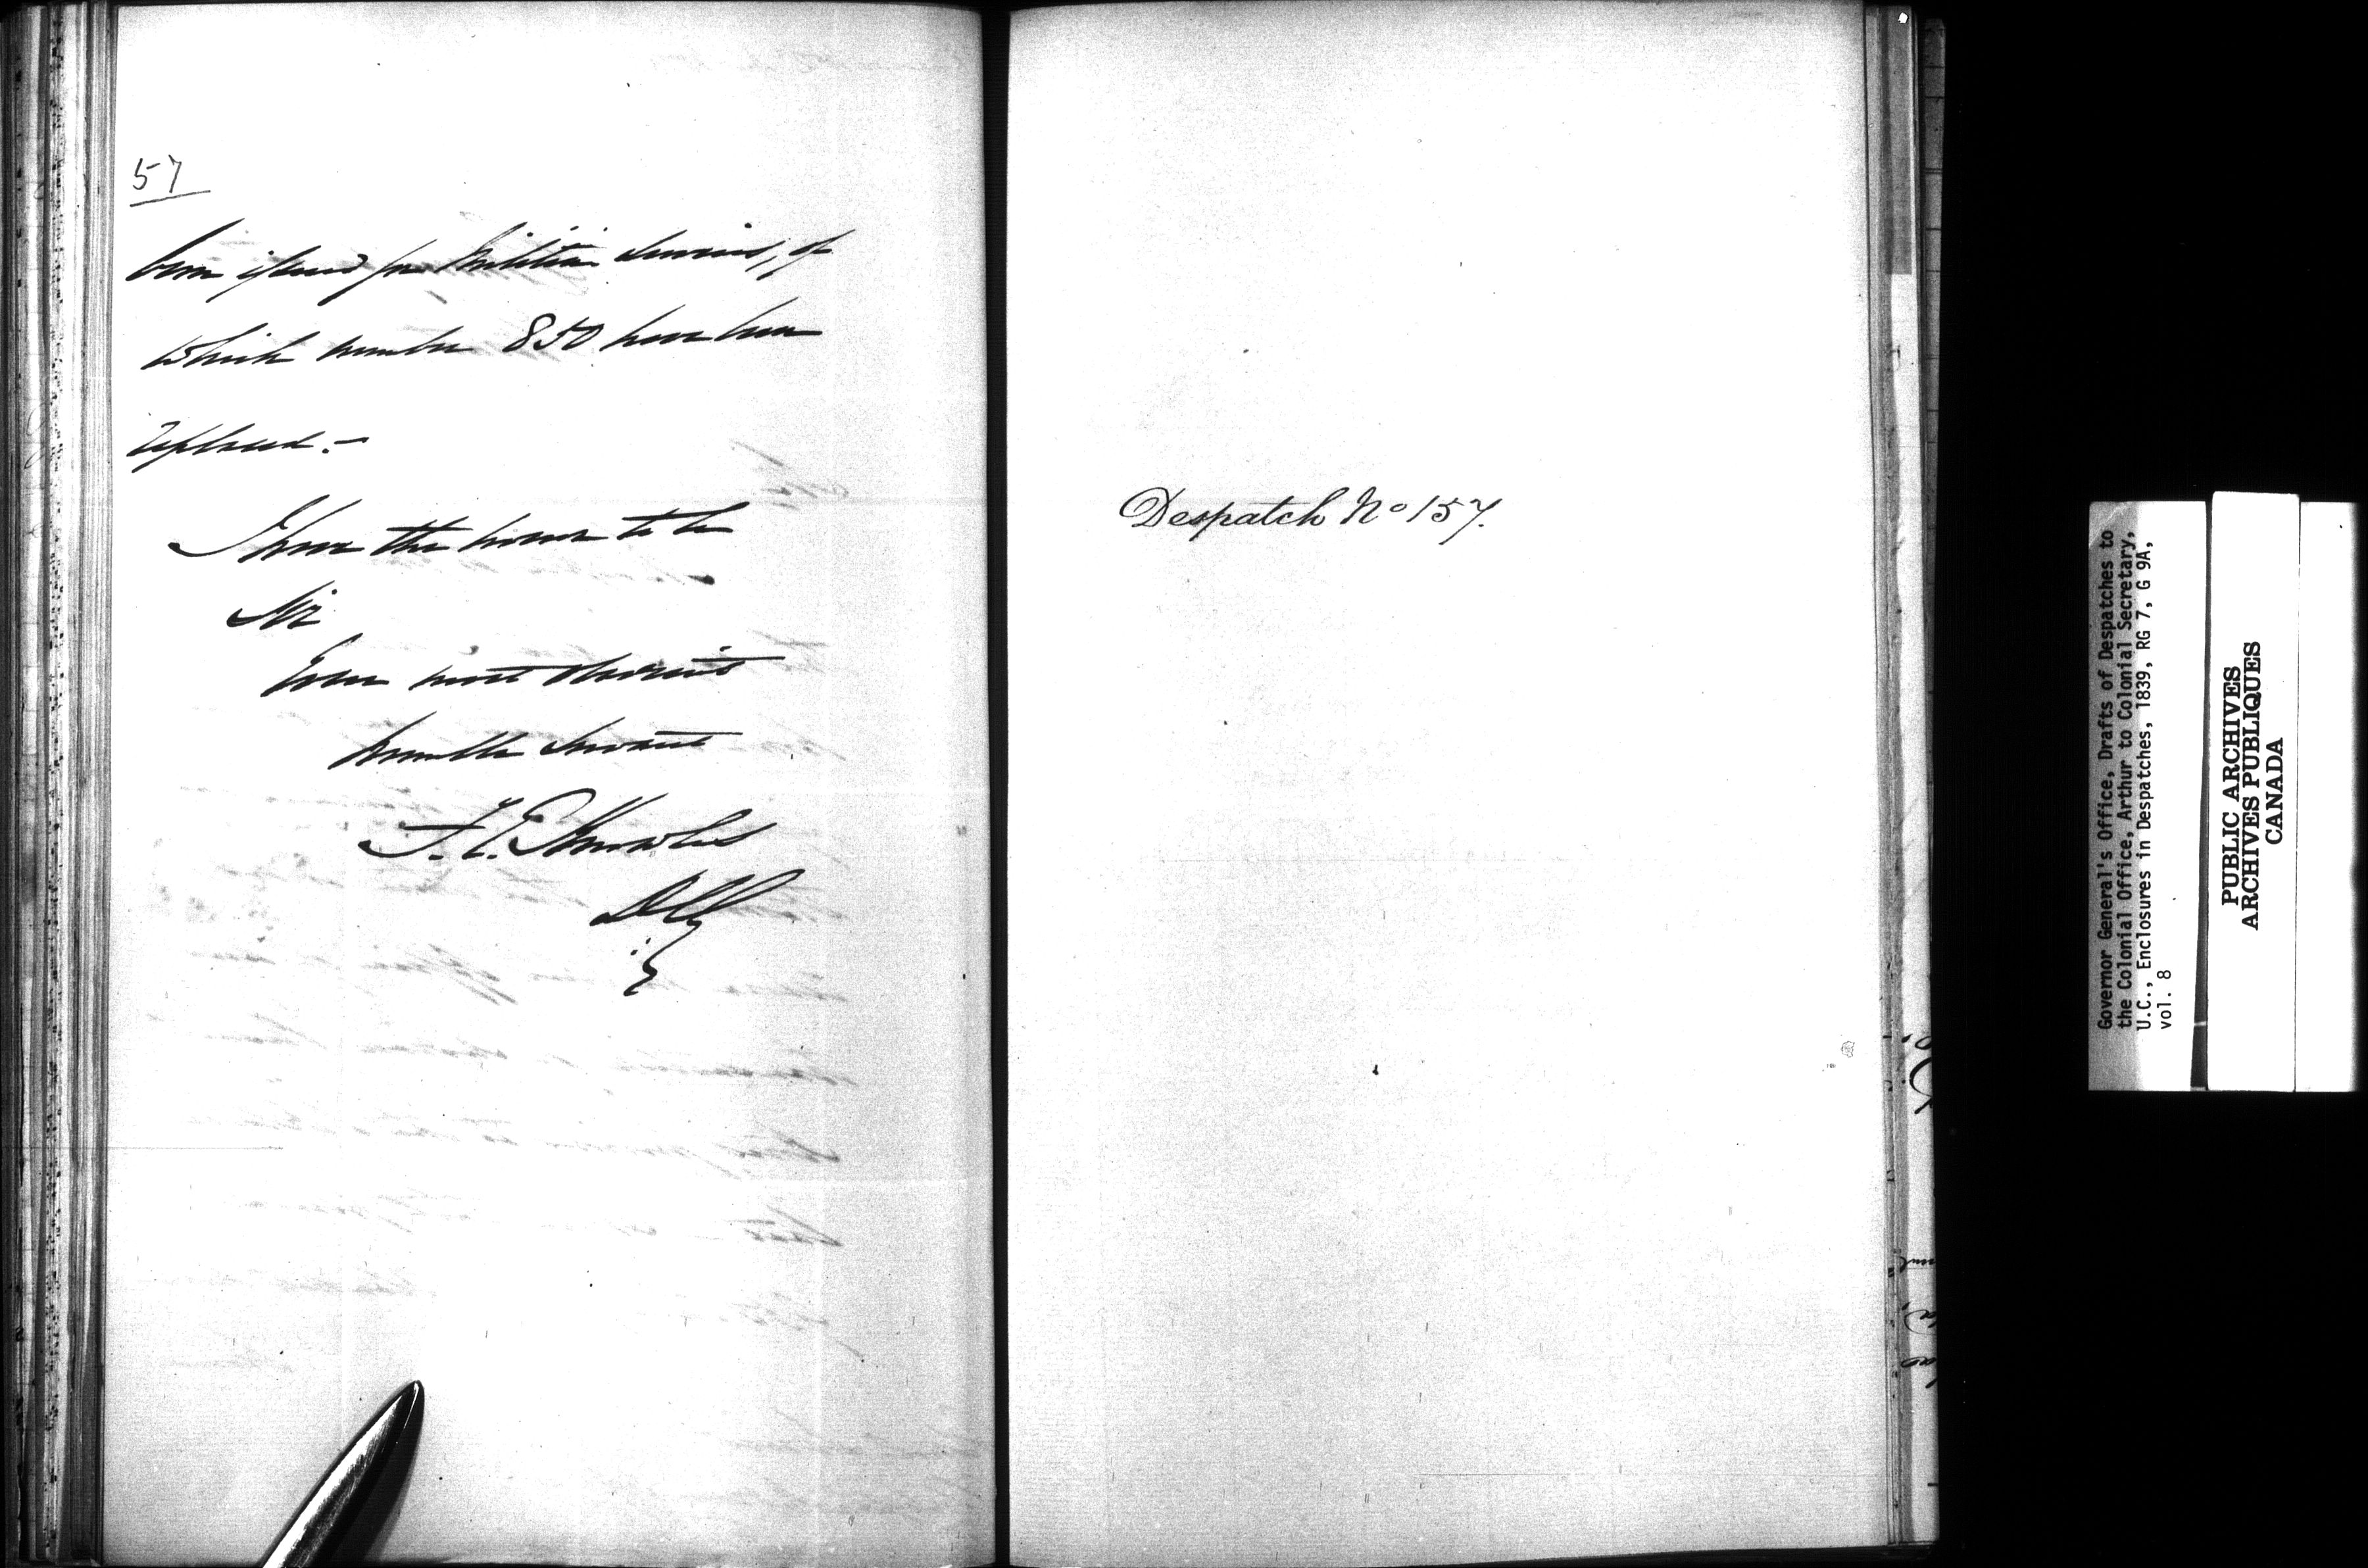 57
been issued for Militia Services, of
which number 850 have been
replaced. -
I have the honor to be
Sir
Your most obedient
humble Servant
Despatch No 157.
Governor General's Office, Drafts of Despatches to
the Colonial Office, Arthur to Colonial Secretary,
U.C., Enclosures in Despatches, 1839, RG 7, G 9A,
vol. 8
PUBLIC ARCHIVES
ARCHIVES PUBLIQUES
CANADA